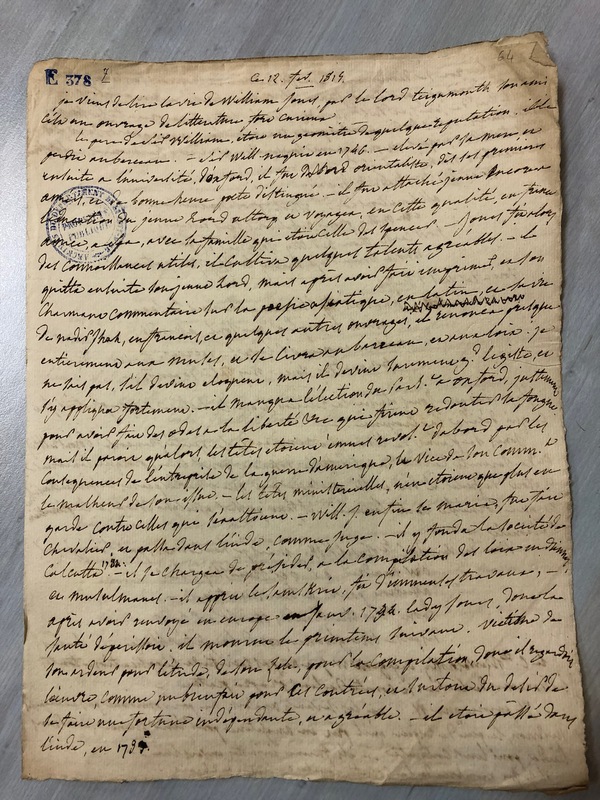 E 378 7
64
ce 12. fev. 1819.
je viens de lire la vie de William Jones, par le lord teignmouth son ami
c'est un ouvrage de litterature fort curieux
le pere de Sir William, etoit un geometre de quelque reputation, il le
perdit au berceau. – Sir Will. naquit en 1746. – elevé par sa mere, et
ensuite a l'université, d'oxford, il fut d'abord orientaliste, dès ses premieres
années, et de bonne heure poete distingué. – il fut attaché jeune encore a
l'education du jeune Lord altorp et voyagea, en cette qualité, en france
avec la famille qui etoit celle des spencer. – Jones
des connoissances utiles, il cultiva quelques talents agréables. – il
quitta ensuite son jeune Lord, mais après avoir fait imprimer, en son
charmant commentaire sur la poesie asiatique, en latin, et la vie
de nadir Shah, en francois, et quelques autres ouvrages, il renonca presque
entierement aux muses, et se livra au barreau, et aux loix. je
ne sais pas, s'il devint eloquent, mais il devint surement gd legiste, et
s'y appliqua fortement. – il manqua l'election du parl. a oxford, justement
pour avoir fait des odes a la liberté
mais il paroit qu'alors, les tetes etoient emues d'abord par les
consequences de l'entreprise de la guerre d'amerique,
le malheur de son issue. – les tetes ministerielles, n'en etoient que plus en
garde contre celles qui s'exaltoient. – Will. J. enfin se marie, fut fait
chevalier, et passa dans l'inde comme juge. – il y fonda la societé de
Calcutta 1784. – il se chargea de présider, a la compilation des loix indiennes
et musulmanes. – il apprit le sanskrit, fit d'immenses travaux, –
après avoir renvoyé en europe en lady Jones, dont la
santé deperissoit, il mourut le printems suivant. victime de
son ardeur pour l'etude, de son zele, pour la compilation, dont il regardoit
l'œuvre, comme un bienfait pour ces contrées, et surtout du desir de
se faire une fortune indépendante, et agréable. – il etoit passé dans
l'inde, en